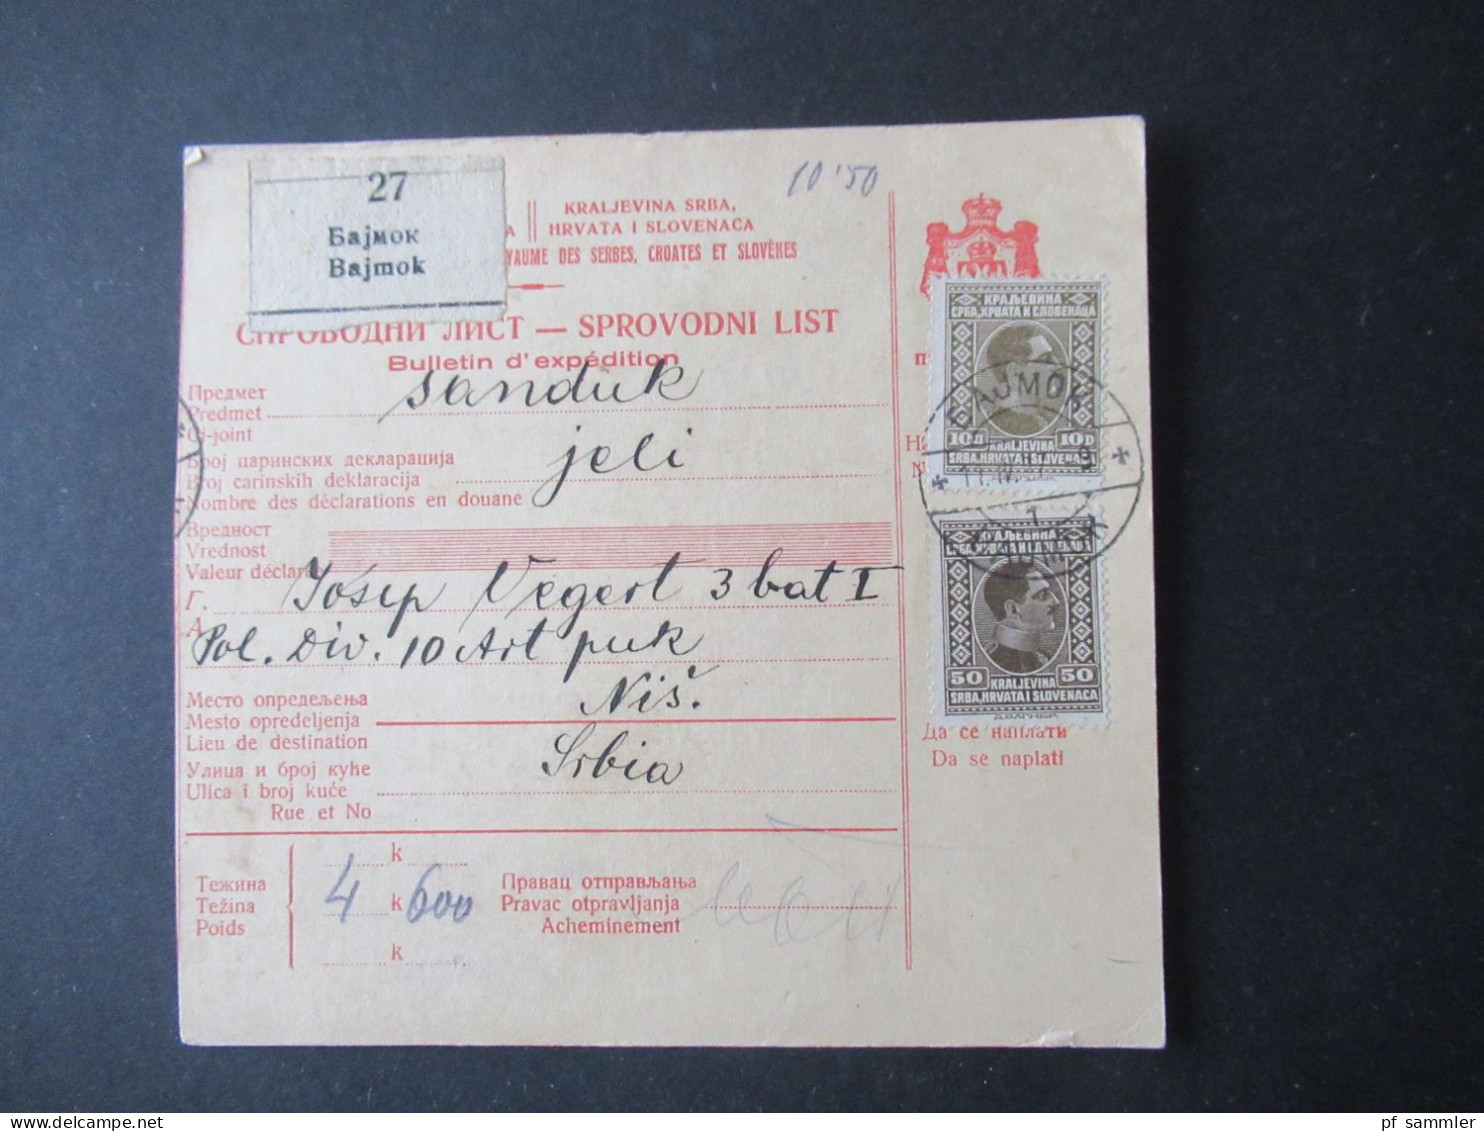 27
Бајмок
Bajmok
10'50
KRALJEVINA SRBA,
А HRVATA I SLOVENACA
YAUME DES SERBES, CROATES ET SLOVÈNES
СПРОВОДНИ ЛИСТ — SPROVODNI LIST
Bulletin d'expédition
Предмет
Predmet
Ci-joint
sanduk
Број царинских декларација
Broj carinskih deklaracija
Nombre des déclarations en douane
jeli
Вредност
Vrednost
Valeur déclaré
Г.
A
Josip Vegert 3 bat I
Pol. Div. 10 Art puk
Место опредељења
Mesto opredeljenja
Lieu de destination
Niš.
Улица и број куће
Ulica i broj kuće
Rue et No
Srbia
Тежина
Težina
Poids
k
4 k 600
k
Правац отправљања
Pravac otpravljanja
Acheminement
КРАЉЕВИНА
СРБА, ХРВАТА И СЛОВЕНАЦА
10 Д 10 D
KRALJEVINA
SRBA, HRVATA I SLOVENACA
BAJMOK
КРАЉЕВИНА
СРБА, ХРВАТА И СЛОВЕНАЦА
50 50
KRALJEVINA
SRBA, HRVATA I SLOVENACA
Да се наплати
Da se naplati
pf sammler
delcampe.net